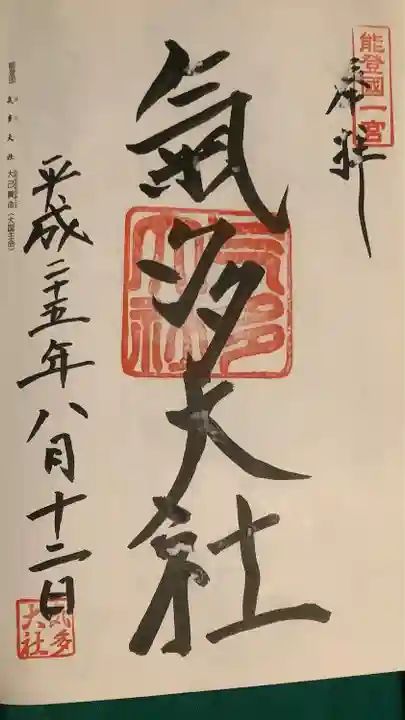 能登國一宮
奉拝
氣多大社
気多大社
平成二十五年八月十二日
気多大社
氣多大社 大己貴命(大国主命)